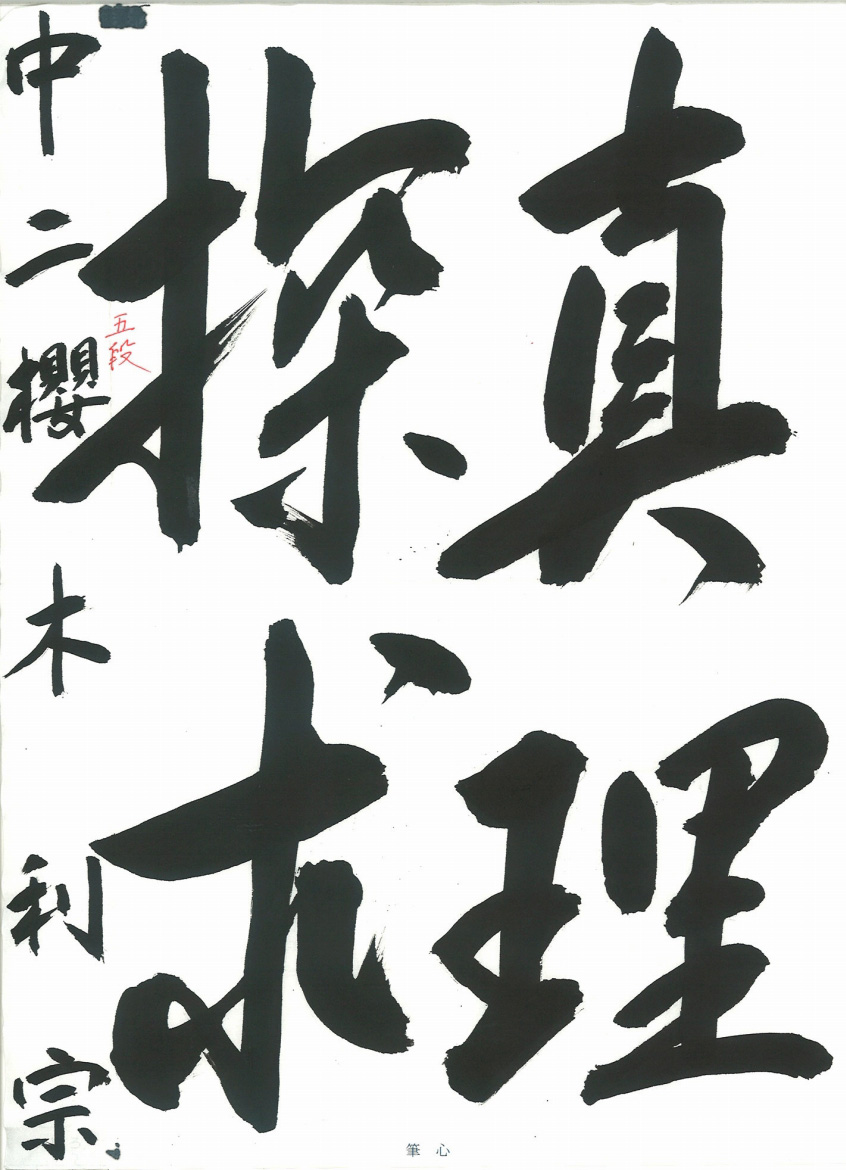 真理
探求
五段
中二櫻木利宗
筆心